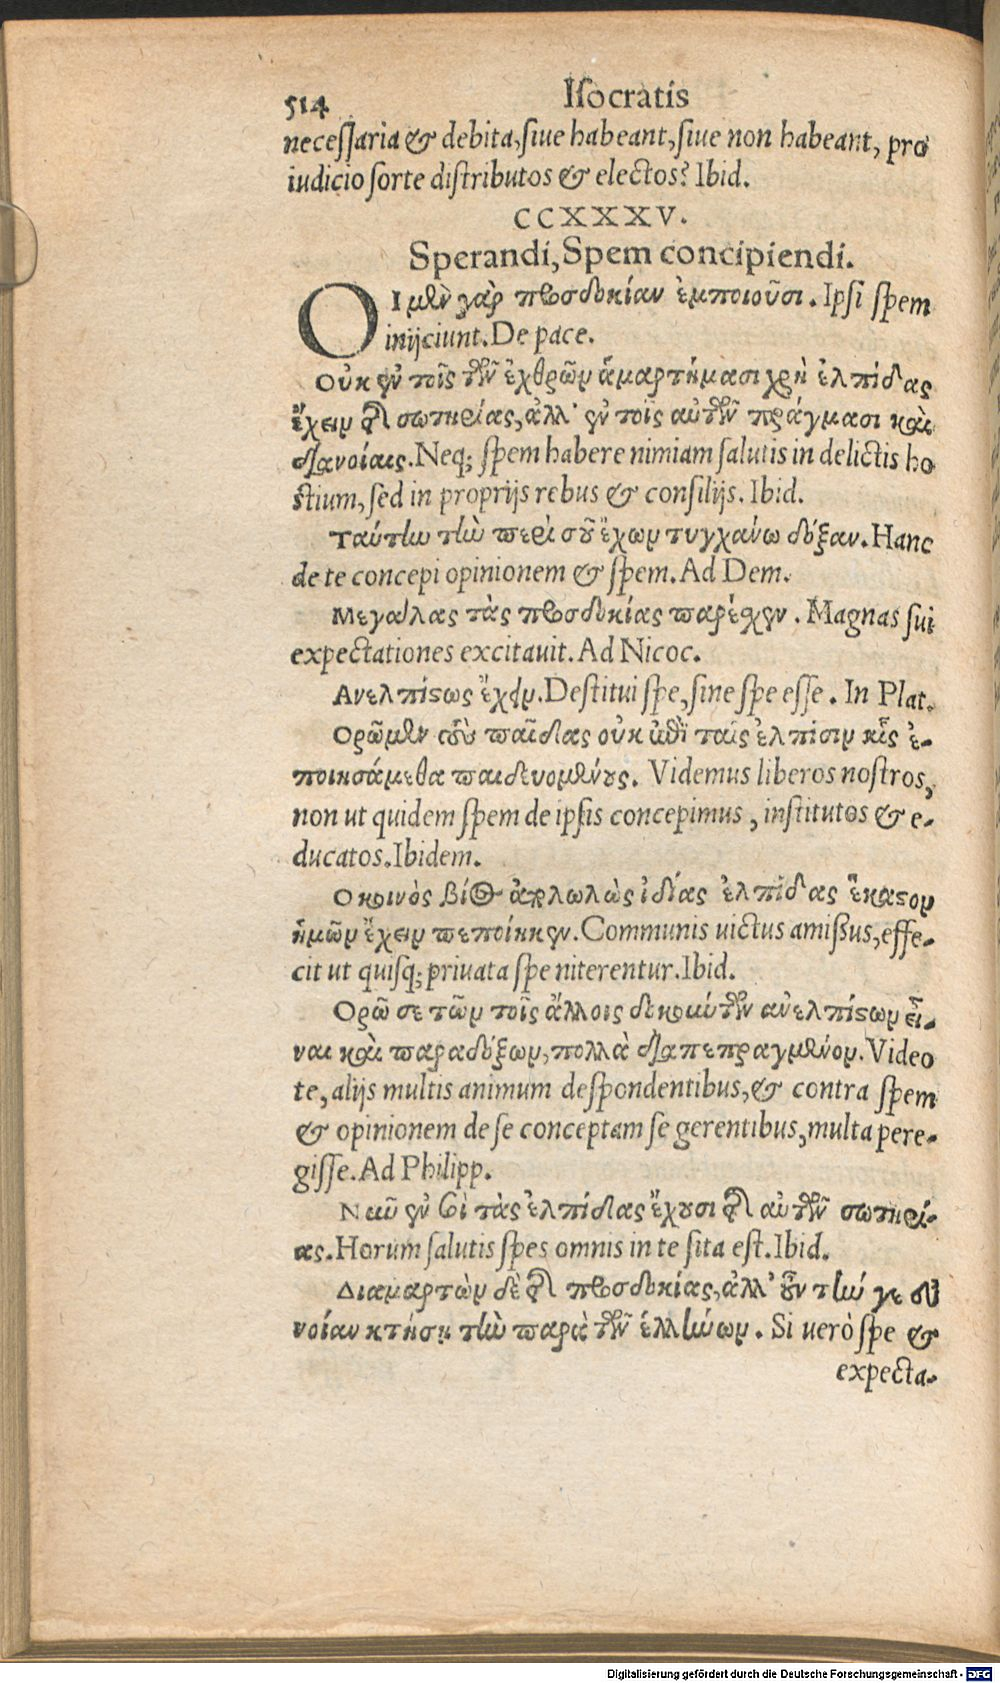 514 Isocratis
necessaria & debita, siue habeant, siue non habeant, pro
iudicio sorte distributos & electos? Ibid.
CCXXXV.
Sperandi, Spem concipiendi.
ΟΙ μὲν γὰρ προσδοκίαν ἐμποιοῦσι. Ipsi spem
inijciunt. De pace.
Οὐκ ἐν τοῖς τῶν ἐχθρῶν ἁμαρτήμασι χρὴ ἐλπίδας
ἔχειν τῆς σωτηρίας, ἀλλ' ἐν τοῖς αὐτῶν πράγμασι καὶ
διανοίαις. Neq; spem habere nimiam salutis in delictis ho
stium, sed in proprijs rebus & consilijs. Ibid.
Ταύτην τὴν περὶ σοῦ ἔχων τυγχάνω δόξαν. Hanc
de te concepi opinionem & spem. Ad Dem.
Μεγάλας τὰς προσδοκίας παρέσχεν. Magnas sui
expectationes excitauit. Ad Nicoc.
Ανελπίστως ἔχειν. Destitui spe, sine spe esse. In Plat.
Ορῶμεν τοὺς παῖδας οὐκ ἐπὶ ταῖς ἐλπίσιν αἷς ἐ-
ποιησάμεθα παιδευομένους. Videmus liberos nostros,
non ut quidem spem de ipsis concepimus, institutos & e-
ducatos. Ibidem.
Ο κοινὸς βίος ἀπολωλὼς ἰδίας ἐλπίδας ἕκαστον
ἡμῶν ἔχειν πεποίηκεν. Communis uictus amissus, effe-
cit ut quisq; priuata spe niterentur. Ibid.
Ορῶ σε τῶν τοῖς ἄλλοις δοκούντων ἀνελπίστων εἶ-
ναι καὶ παραδόξων, πολλὰ διαπεπραγμένον. Video
te, alijs multis animum despondentibus, & contra spem
& opinionem de se conceptam se gerentibus, multa pere-
gisse. Ad Philipp.
ἐν σοὶ τὰς ἐλπίδας ἔχουσι τῆς αὐτῶν σωτηρί-
ας. Horum salutis spes omnis in te sita est. Ibid.
Διαμαρτὼν δὲ τῆς προσδοκίας, ἀλλ' οὖν τήν γε εὔ
νοιαν κτήσῃ τὴν παρὰ τῶν ἑλλήνων. Si uerò spe &
expecta-
Digitalisierung gefördert durch die Deutsche Forschungsgemeinschaft - DFG